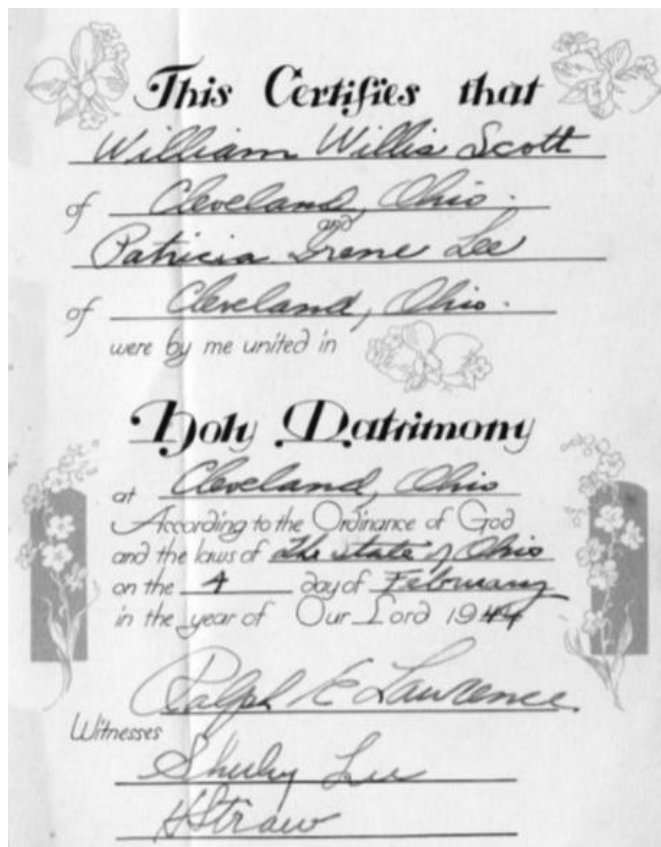 This Certifies that
William Willis Scott
of Cleveland, Ohio.
and
Patricia Irene Lee
of Cleveland, Ohio.
were by me united in
Holy Matrimony
at Cleveland, Ohio
According to the Ordinance of God
and the laws of the state of Ohio
on the 4 day of February
in the year of Our Lord 1944
Ralph E Lawrence
Witnesses
Lee
H Straw